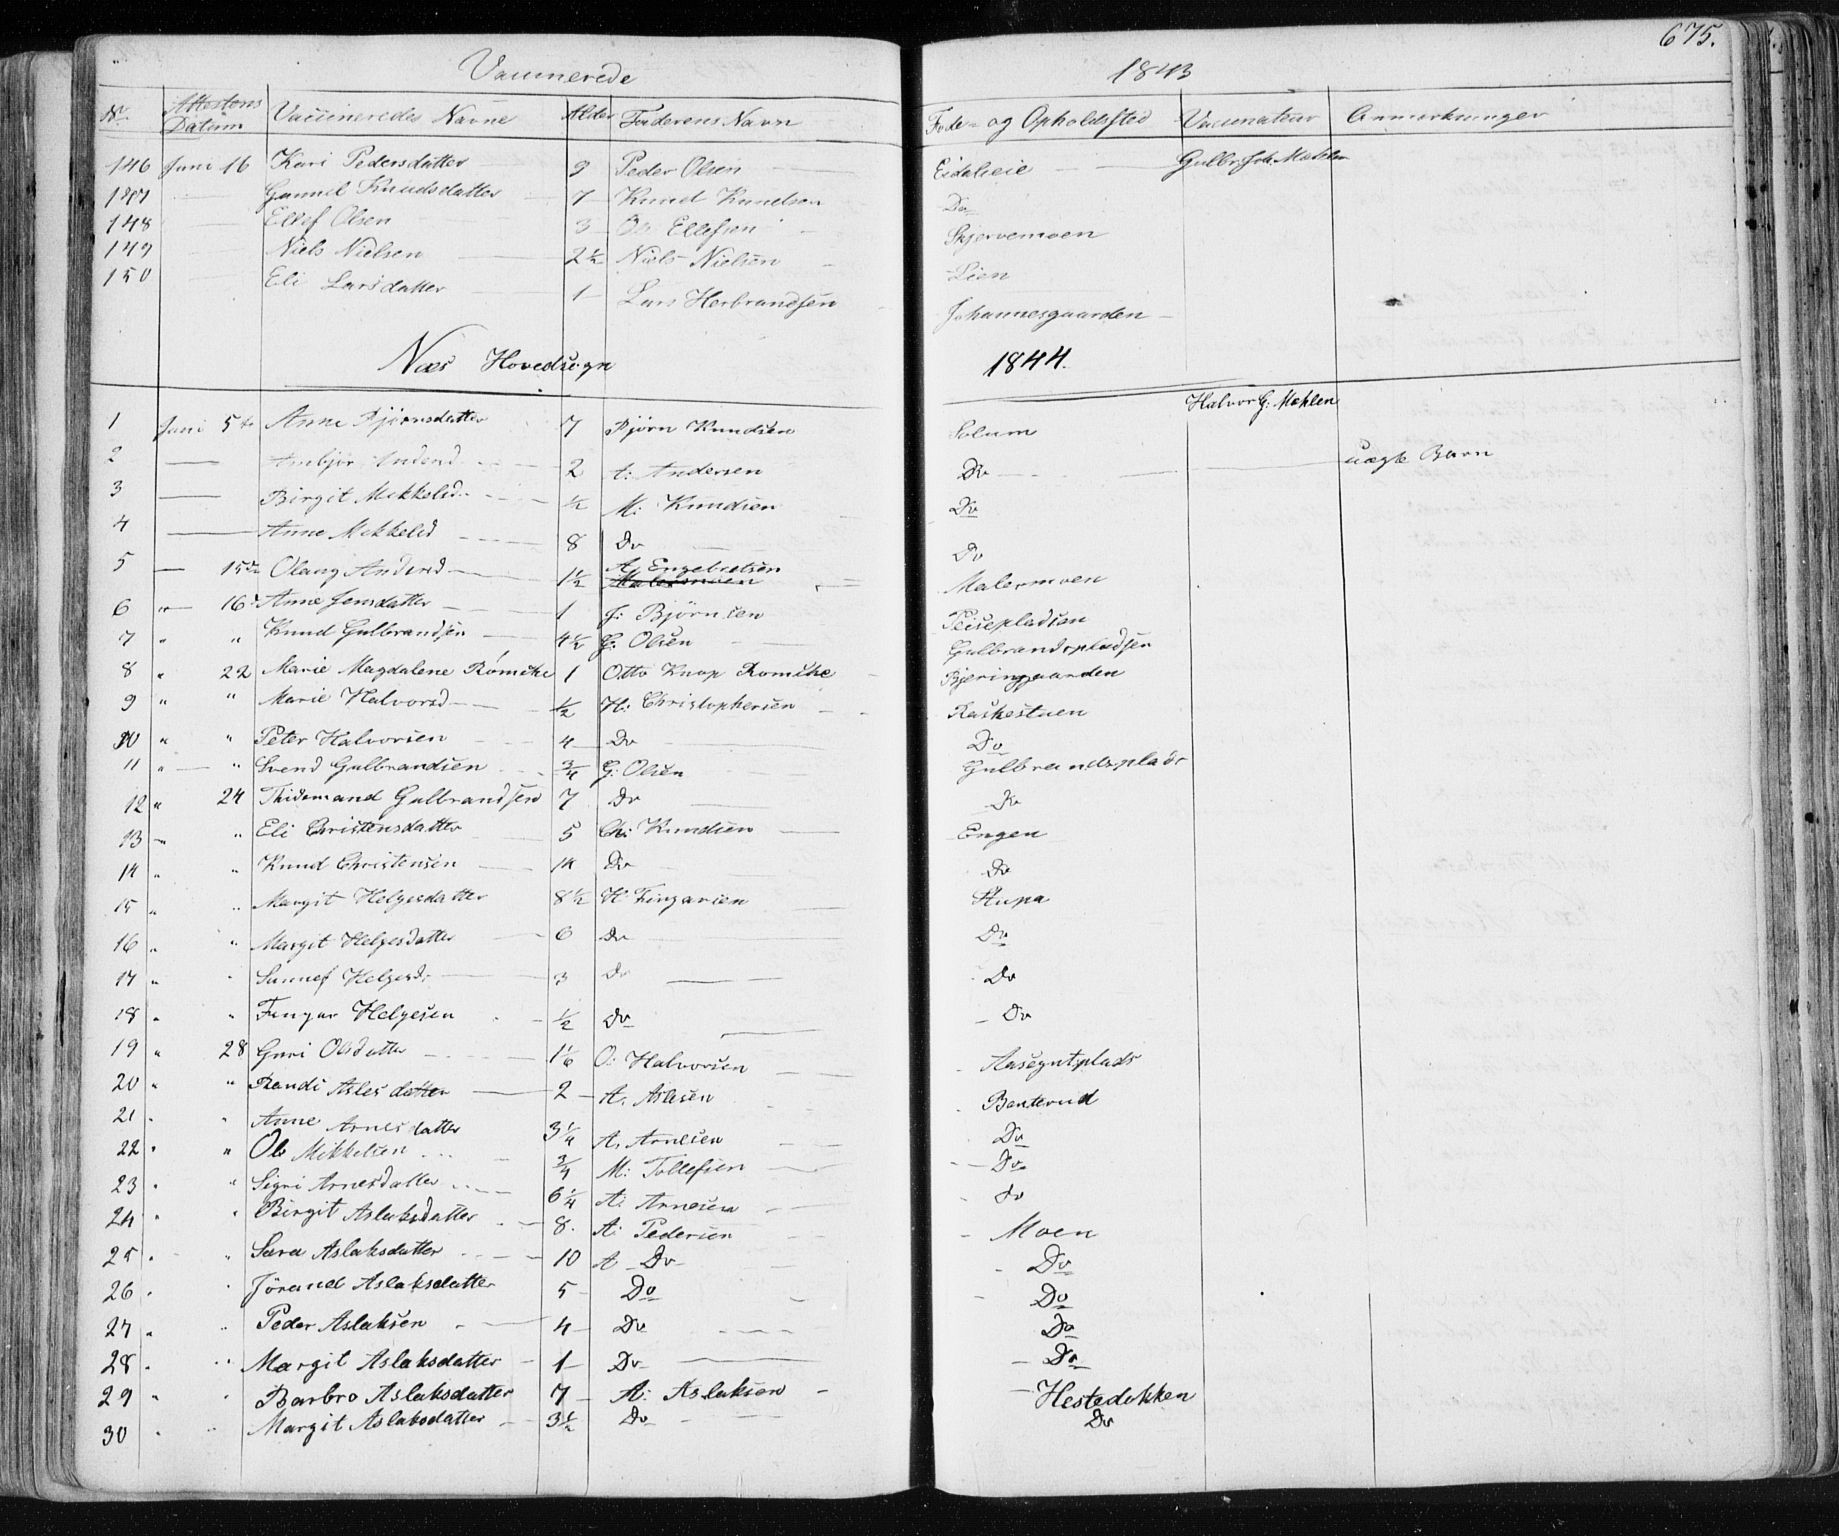 675.
Vaccinerede 1843
No. Attestens Datum Vaccineredes Navne Alder Faderens Navn Føde- og Opholdssted Vaccinateur Anmærkninger
146 Juni 16 Kari Pedersdatter 9 Peder Olsen Eidalseie Gulbr. Joh. Mæhlen
147 Gunnil Knudsdatter 7 Knud Knudsen Do
148 Ellef Olsen 3 Ole Ellefsen Skjervemoen
149 Niels Nielsen 2½ Niels Nielsen Lien
150 Eli Larsdatter 1 Lars Herbrandsen Johannesgaarden
Næs Hovedsogn 1844.
1 Juni 5te Anne Bjørnsdatter 7 Bjørn Knudsen Solum Halvor G: Mæhlen
2 — Ambjør Andersd 2 A: Andersen Do uægte Barn
3 — Birgit Mikkelsd. ½ M: Knudsen Do
4 — Anne Mikkelsd 8 Do Do
5 — 15de Olaug Andersd 1½ A: Engebretsen Malermoen
6 " 16 Anne Jensdatter 1 J: Bjørnsen Teisepladsen
7 " " Knud Gulbrandsen 4½ G: Olsen Gulbrandspladsen
8 " 22 Marie Magdalene Rømcke 1 Otto Knap Romcke Bjeringgaarden
9 " " Marie Halvorsd ½ H: Christophersen Raskestuen
10 " " Peter Halvorsen 4 Do Do
11 " " Svend Gulbrandsen ¾ G: Olsen Gulbrandsplads
12 " 24 Thidemand Gulbrandsen 7 Do Do
13 " " Eli Christensdatter 5 Ch: Knudsen Engen
14 " " Knud Christensen 14 Do Do
15 " " Margit Helgesdatter 8½ H: Fingarsen Stupa
16 " " Margit Helgesdatter 6 Do Do
17 " " Sunnef Helgesd: 3 Do Do
18 " " Fingar Helgesen ½ Do Do
19 " 28 Guri Olsdatter 1⅙ O: Halvorsen Aasegutplads
20 " " Randi Aslesdatter 2 A: Aslesen Benterud
21 " " Anne Arnesdatter 3¼ A: Arnesen Do
22 " " Ole Mikkelsen ¾ M: Tollefsen Do
23 " " Sigri Arnesdatter 6¼ A: Arnesen do
24 " " Birgit Aslaksdatter 8 A: Pedersen Moen
25 " " Sara Aslaksdatter 10 A Do Do
26 " " Jørand Aslaksdatter 5 Do Do
27 " " Peder Aslaksen 4 Do Do
28 " " Margit Aslaksdatter 1 Do Do
29 " " Barbro Aslaksdatter 7 A: Aslaksen Hestedokken
30 " " Margit Aslaksdatter 3½ Do Do